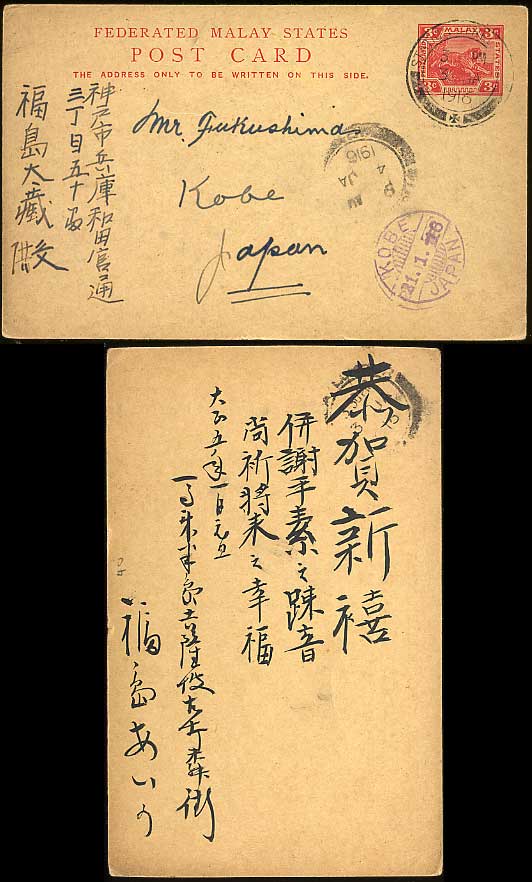 FEDERATED MALAY STATES
POST CARD
THE ADDRESS ONLY TO BE WRITTEN ON THIS SIDE.
3c MALAY 3c
Mr. Fukushima
Kobe
Japan
神戸市兵庫和田宮通
三丁目五十番
福島大藏
1916
4 JA
1916
KOBE
21.1.16
JAPAN
恭賀新禧
併謝平素之踈音
尚祈將来之幸福
大正五年一月元旦
福島あい